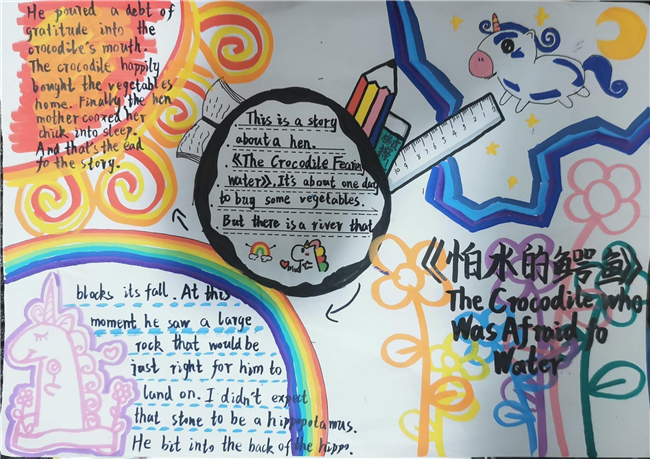 《怕水的鳄鱼》
The Crocodile who
Was Afraid to
Water
This is a story
about a hen.
《The Crocodile Fearing
water》. It's about one day
to bug some vegetables.
But there is a river that
blocks its fall. At this
moment he saw a large
rock that would be
just right for him to
land on. I didn't expect
that stone to be a hippopotamus.
He bit into the back of the hippo.
He poured a debt of
gratitude into the
crocodile's mouth.
The crocodile happily
bought the vegetables
home. Finally the hen
mother coaxed her
chick into sleep.
And that's the end
to the story.